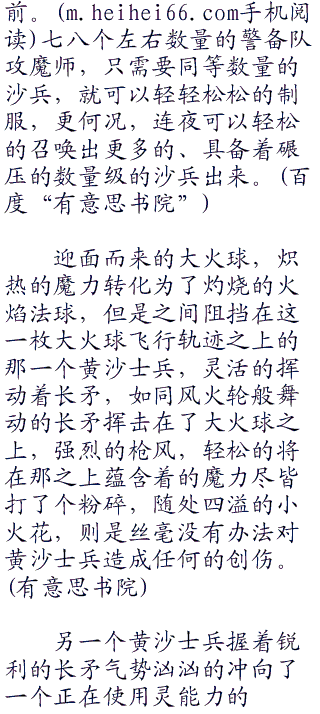 前。(m.heihei66.com手机阅
读)七八个左右数量的警备队
攻魔师，只需要同等数量的
沙兵，就可以轻轻松松的制
服，更何况，连夜可以轻松
的召唤出更多的、具备着碾
压的数量级的沙兵出来。(百
度“有意思书院”)
迎面而来的大火球，炽
热的魔力转化为了灼烧的火
焰法球，但是之间阻挡在这
一枚大火球飞行轨迹之上的
那一个黄沙士兵，灵活的挥
动着长矛，如同风火轮般舞
动的长矛挥击在了大火球之
上，强烈的枪风，轻松的将
在那之上蕴含着的魔力尽皆
打了个粉碎，随处四溢的小
火花，则是丝毫没有办法对
黄沙士兵造成任何的创伤。
(有意思书院)
另一个黄沙士兵握着锐
利的长矛气势汹汹的冲向了
一个正在使用灵能力的